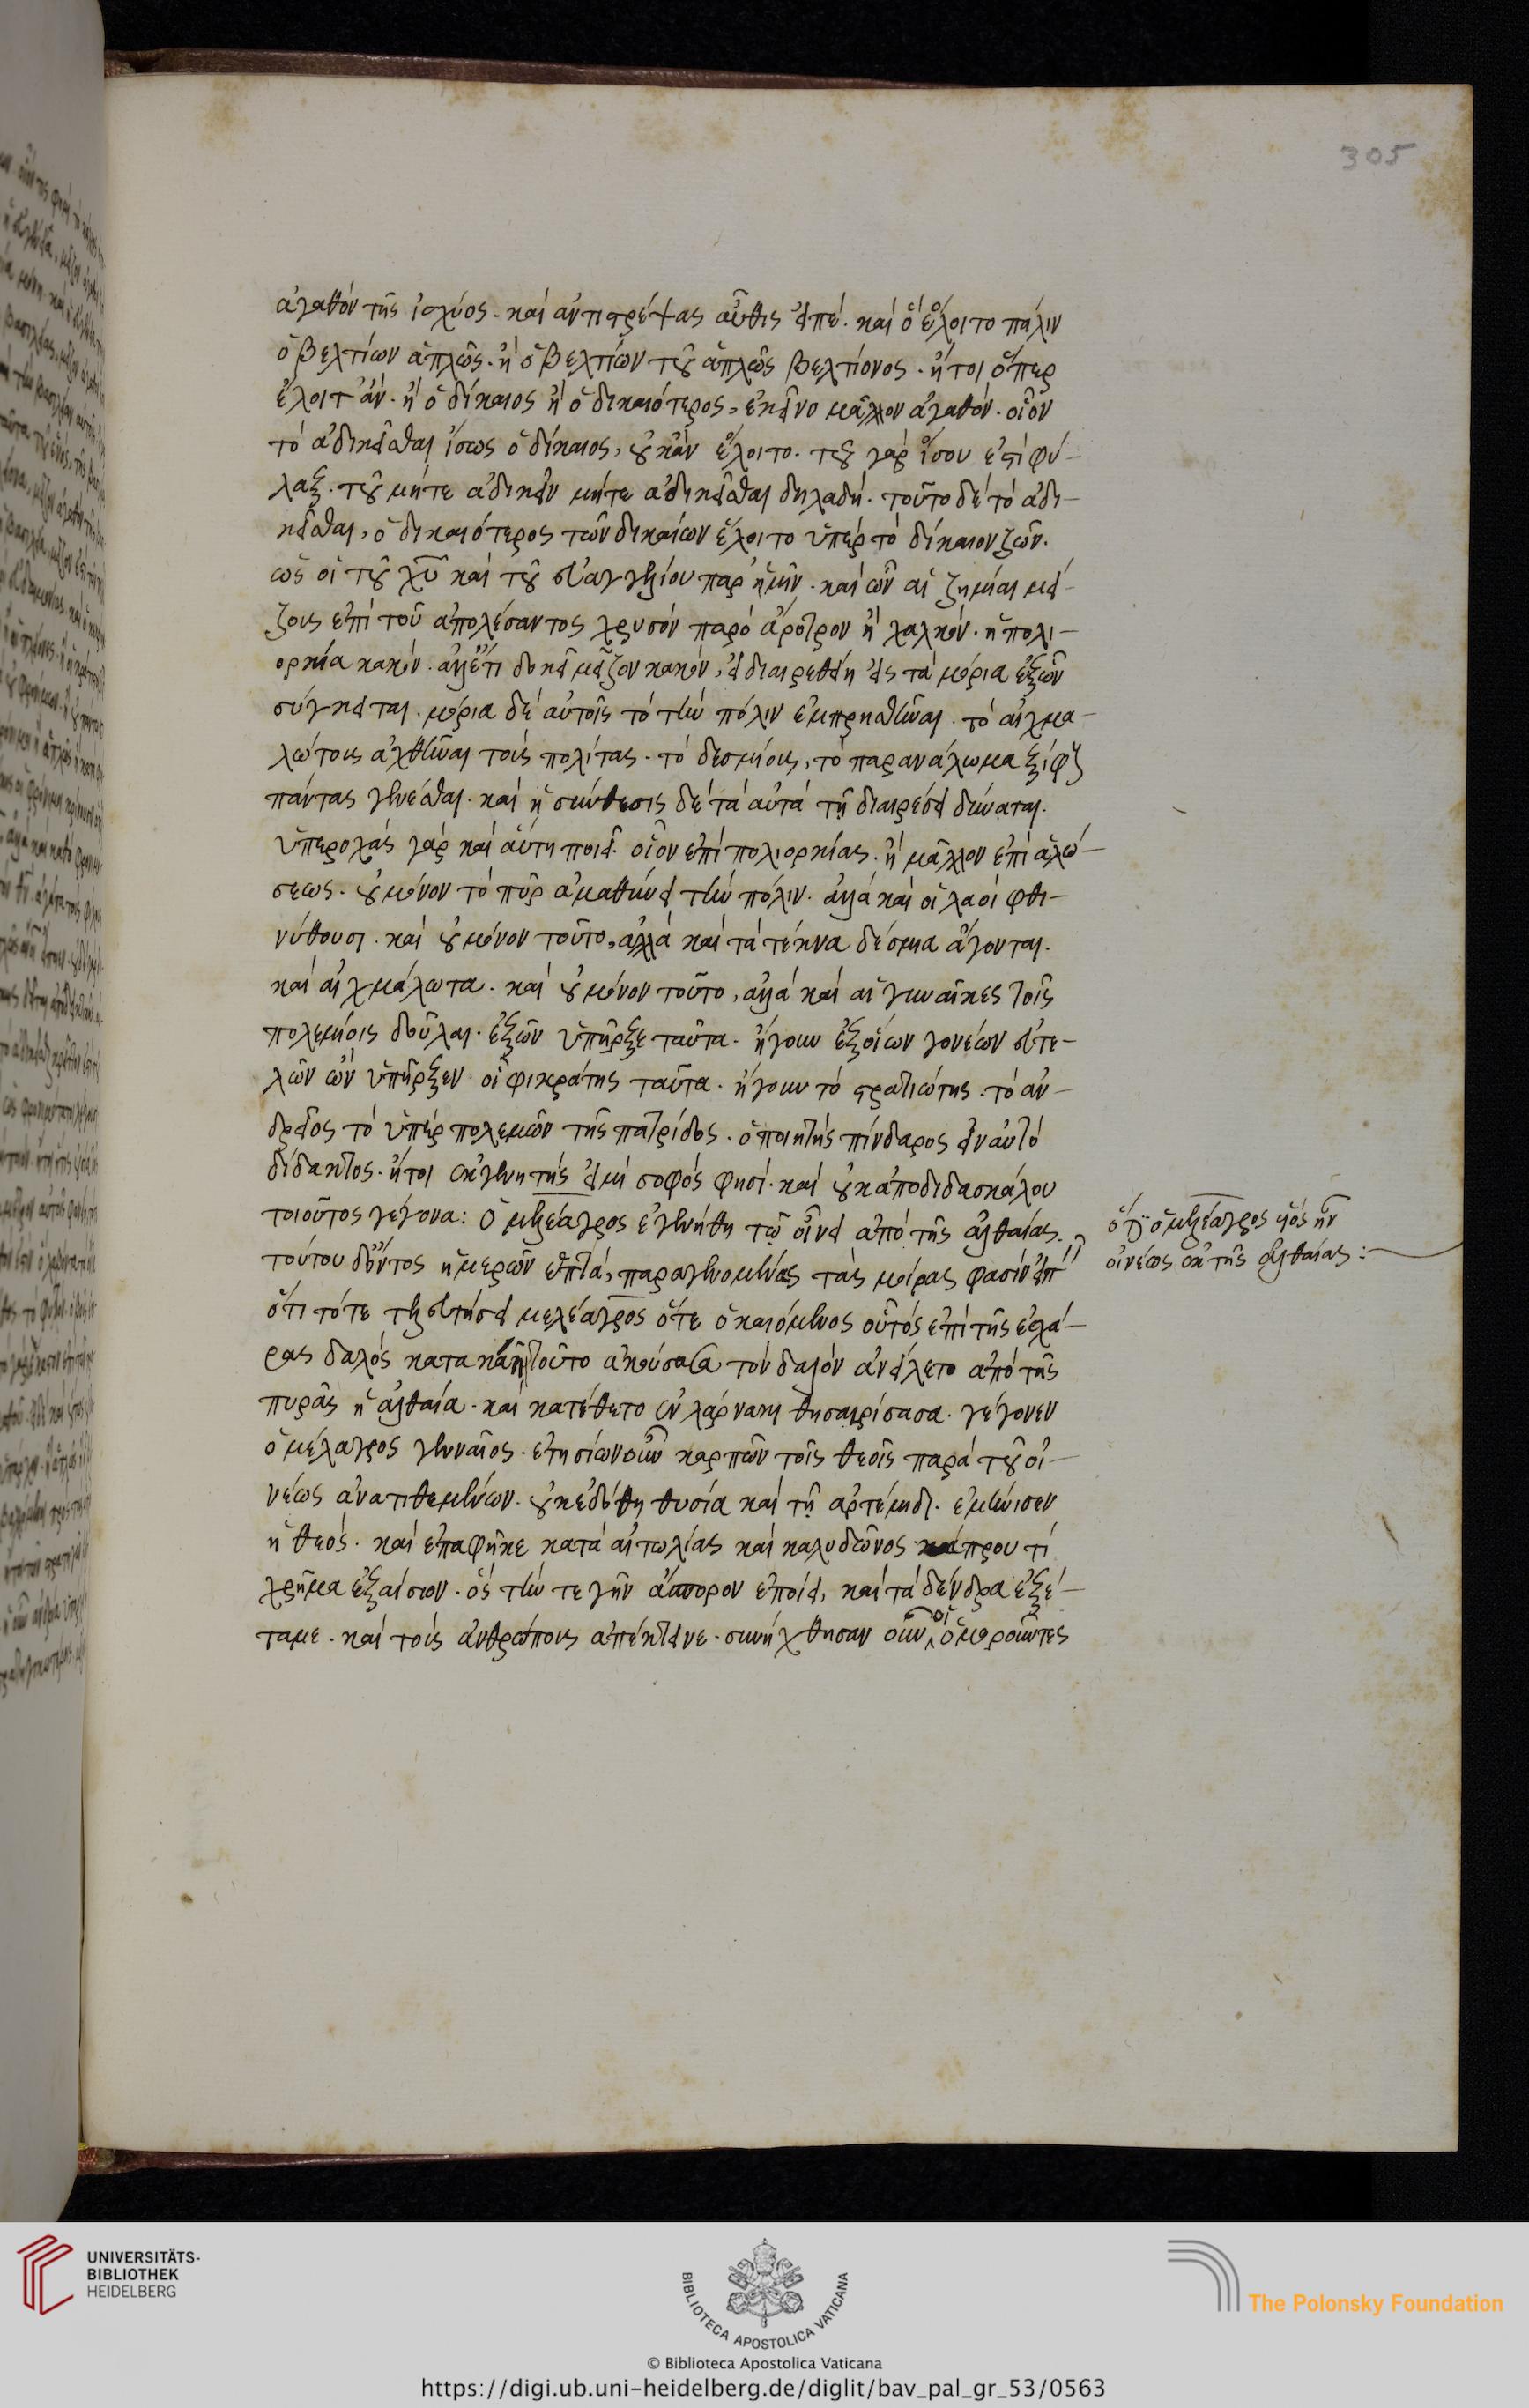 305
ἀγαθόν τῆς ἰσχύος. καὶ ἀντιστρέψας αὖθις εἰπέ. καὶ ὃ ἕλοιτο πάλιν
ὁ βελτίων ἁπλῶς. ἢ ὁ βελτίων τοῦ ἁπλῶς βελτίονος. ἤτοι ὅπερ
ἕλοιτ' ἄν. ἢ ὁ δίκαιος ἢ ὁ δικαιότερος, ἐκεῖνο μᾶλλον ἀγαθόν. οἷον
τὸ ἀδικεῖσθαι ἴσως ὁ δίκαιος, οὐκ ἂν ἕλοιτο. τοῦ γὰρ ἴσου ἐστὶ φύ-
λαξ. τοῦ μήτε ἀδικεῖν μήτε ἀδικεῖσθαι δηλαδή. τοῦτο δὲ τὸ ἀδι-
κεῖσθαι, ὁ δικαιότερος τῶν δικαίων ἕλοιτο ὑπὲρ τὸ δίκαιον ζῶν.
ὡς οἱ τοῦ χυ καὶ τοῦ εὐαγγελίου παρ' ἡμῖν. καὶ ὧν αἱ ζημίαι μεί-
ζους ἐπὶ τοῦ ἀπολέσαντος χρυσόν παρὸ ἄροτρον ἢ χαλκόν. ἡ πολι-
ορκία κακόν. ἀλλ' ἔτι δοκεῖ μεῖζον κακόν, εἰ διαιρεθείη εἰς τὰ μόρια ἐξ ὧν
σύγκειται. μόρια δὲ αὐτοῖς τὸ τὴν πόλιν ἐμπρησθῆναι. τὸ αἰχμα-
λώτους ἀχθῆναι τοὺς πολίτας. τὸ δεσμίους, τὸ παρανάλωμα ξίφους
πάντας γενέσθαι. καὶ ἡ σύνθεσις δὲ τὰ αὐτὰ τῇ διαιρέσει δύναται.
ὑπεροχὰς γὰρ καὶ αὕτη ποιεῖ. οἷον ἐπὶ πολιορκίας. ἢ μᾶλλον ἐπὶ ἁλώ-
σεως. οὐ μόνον τὸ πῦρ ἀμαθύνει τὴν πόλιν. ἀλλὰ καὶ οἱ λαοὶ φθι-
νύθουσι. καὶ οὐ μόνον τοῦτο, ἀλλὰ καὶ τὰ τέκνα δέσμια ἄγονται.
καὶ αἰχμάλωτα. καὶ οὐ μόνον τοῦτο, ἀλλὰ καὶ αἱ γυναῖκες τοῖς
πολεμίοις δοῦλαι. ἐξ ὧν ὑπῆρξε ταῦτα. ἤγουν ἐξ οἵων γονέων εὐτε-
λῶν ὢν ὑπῆρξεν ὁ ἰφικράτης ταῦτα. ἤγουν τὸ στρατιώτης. τὸ ἀν-
δρεῖος τὸ ὑπὲρ πολεμῶν τῆς πατρίδος. ὁ ποιητὴς πίνδαρος εἶν αὐτο
δίδακτος. ἤτοι ἐκ γενητῆς εἰμὶ σοφός φησί. καὶ οὐκ ἀπὸ διδασκάλου
τοιοῦτος γέγονα: Ὁ μελέαγρος ἐγενήθη τῷ οἰνεῖ ἀπὸ τῆς ἀλθαίας.
τούτου δ' ὄντος ἡμερῶν ἑπτά, παραγενομένας τὰς μοίρας φασὶν εἰπεῖν
ὅτι τότε τελευτήσει μελέαγρος ὅτε ὁ καιόμενος οὗτος ἐπὶ τῆς ἐσχά-
ρας δαλὸς κατακαῇ τοῦτο ἀκούσασα τὸν δαλόν ἀνείλετο ἀπὸ τῆς
πυρᾶς ἡ ἀλθαία. καὶ κατέθετο ἐν λάρνακι θησαυρίσασα. γέγονεν
ὁ μέλαγρος γενναῖος. ἐτησίων οὖν καρπῶν τοῖς θεοῖς παρὰ τοῦ οἰ-
νέως ἀνατιθεμένων. οὐκ ἐδόθη θυσία καὶ τῇ ἀρτέμιδι. ἐμήνισεν
ἡ θεός. καὶ ἐπαφῆκε κατὰ αἰτωλίας καὶ καλυδῶνος κάπρου τί
χρῆμα ἐξαίσιον. ὃς τήν τε γῆν ἄσπορον ἐποίει, καὶ τὰ δένδρα ἐξέ-
ταμε. καὶ τοὺς ἀνθρώπους ἀπέκτεινε. συνήχθησαν οὖν οἱ ὁμοροῦντες
ὅτι ὁ μελέαγρος υἱὸς ἦν
οἰνέως ἐκ τῆς ἀλθαίας:
UNIVERSITÄTS-
BIBLIOTHEK
HEIDELBERG
BIBLIOTECA APOSTOLICA VATICANA
© Biblioteca Apostolica Vaticana
The Polonsky Foundation
https://digi.ub.uni-heidelberg.de/diglit/bav_pal_gr_53/0563